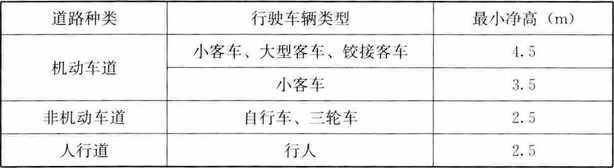 道路种类 行驶车辆类型 最小净高（m）
机动车道 小客车、大型客车、铰接客车 4.5
小客车 3.5
非机动车道 自行车、三轮车 2.5
人行道 行人 2.5